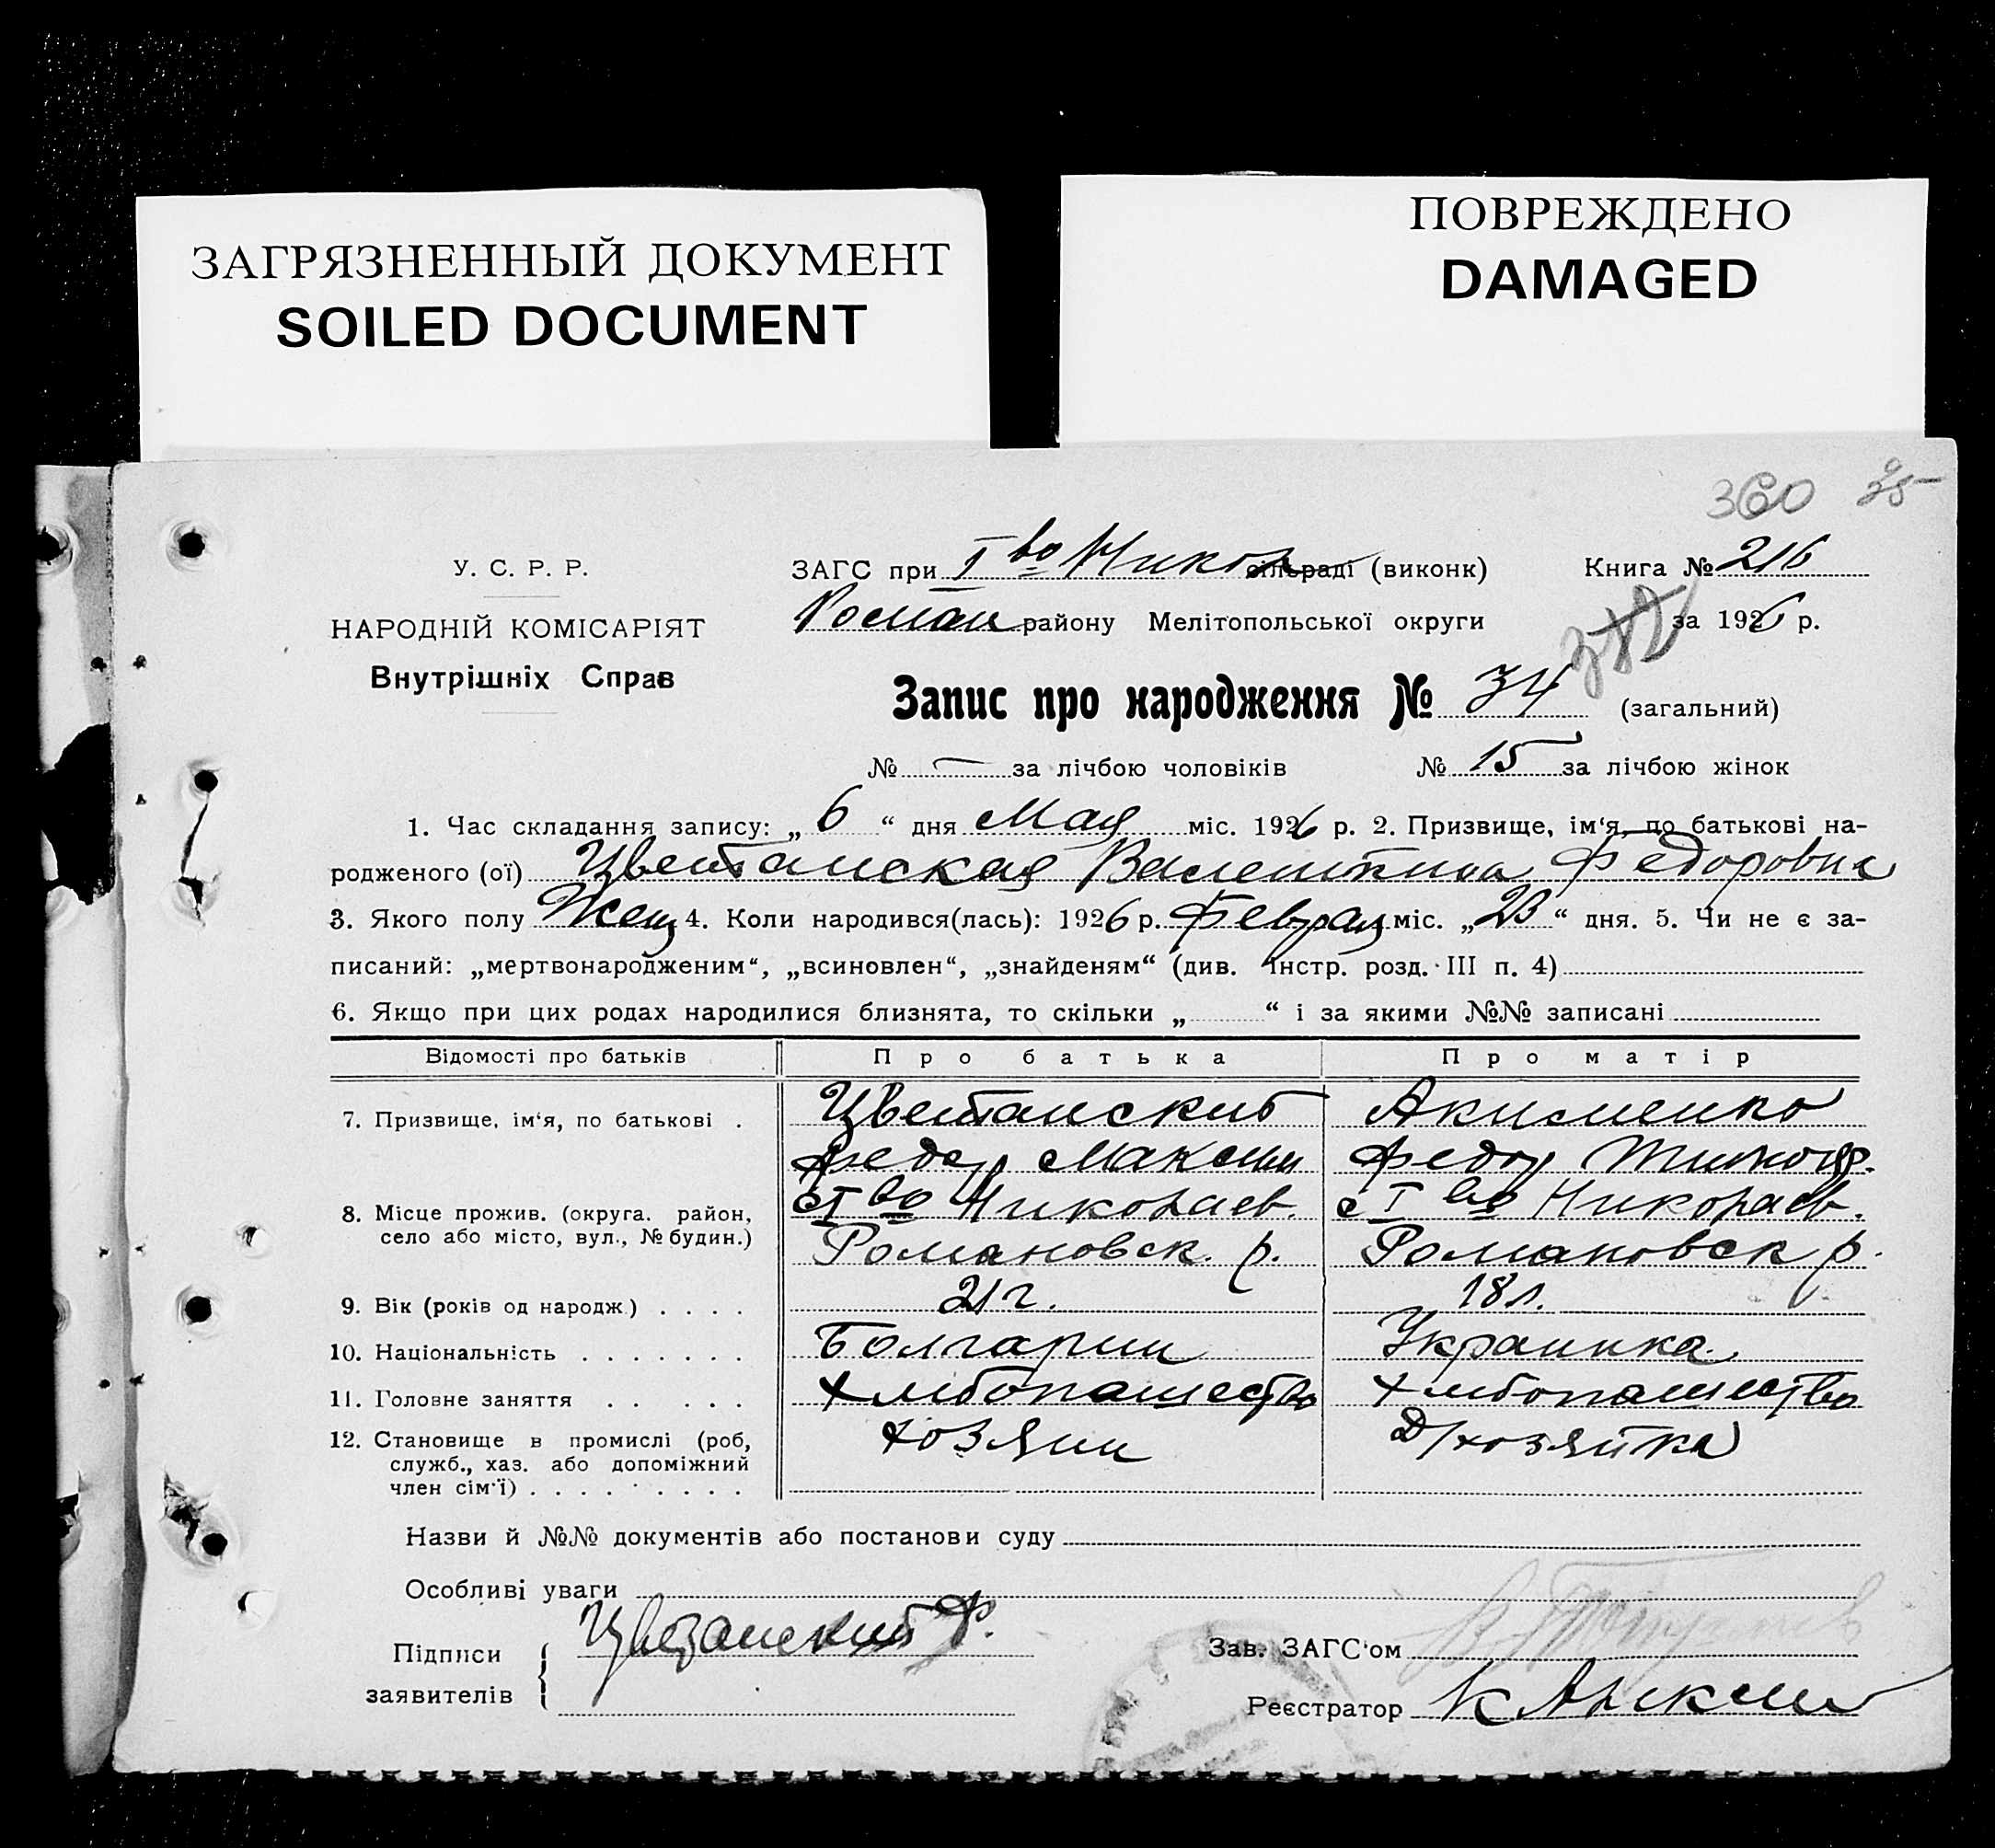 ЗАГРЯЗНЕННЫЙ ДОКУМЕНТ
SOILED DOCUMENT
ПОВРЕЖДЕНО
DAMAGED
360 25
У. С. Р. Р.
НАРОДНІЙ КОМІСАРІЯТ
Внутрішніх Справ
ЗАГС при I во Никол сільраді (виконк) Книга № 216
Роман району Мелітопольської округи за 1926 р.
382
Запис про народження № 34 (загальний)
№ — за лічбою чоловіків № 15 за лічбою жінок
1. Час складання запису: „ 6 “ дня Мая міс. 1926 р. 2. Призвище, ім‘я, по батькові на-
родженого (ої) Цветанская Валентина Федоровна
3. Якого полу Жен 4. Коли народився(лась): 1926 р. Феврал міс. „ 23 “ дня. 5. Чи не є за-
писаний: „мертвонародженим“, „всиновлен“, „знайденям“ (див. Інстр. розд. III п. 4)
6. Якщо при цих родах народилися близнята, то скільки „ “ і за якими №№ записані
Відомості про батьків Про батька Про матір
7. Призвище, ім‘я, по батькові . Цветанский Акименко
Федор Максим Федор
8. Місце прожив. (округа. район, с I во Николаев. с I во Николаев.
село або місто, вул., № будин.) Романовск. р. Романовск р.
9. Вік (років од народж.) . . . . 21 г. 18 л.
10. Національність . . . . . . . Болгарин Украинка
11. Головне заняття . . . . . Хлібопашество Хлібопашество
12. Становище в промислі (роб, хозяин Д/хозяйка
служб., хаз. або допоміжний
член сім‘ї) . . . . . . . . .
Назви й №№ документів або постанови суду
Особливі уваги
Підписи Цветанский Ф.
заявителів
Зав. ЗАГС‘ом
Реєстратор К